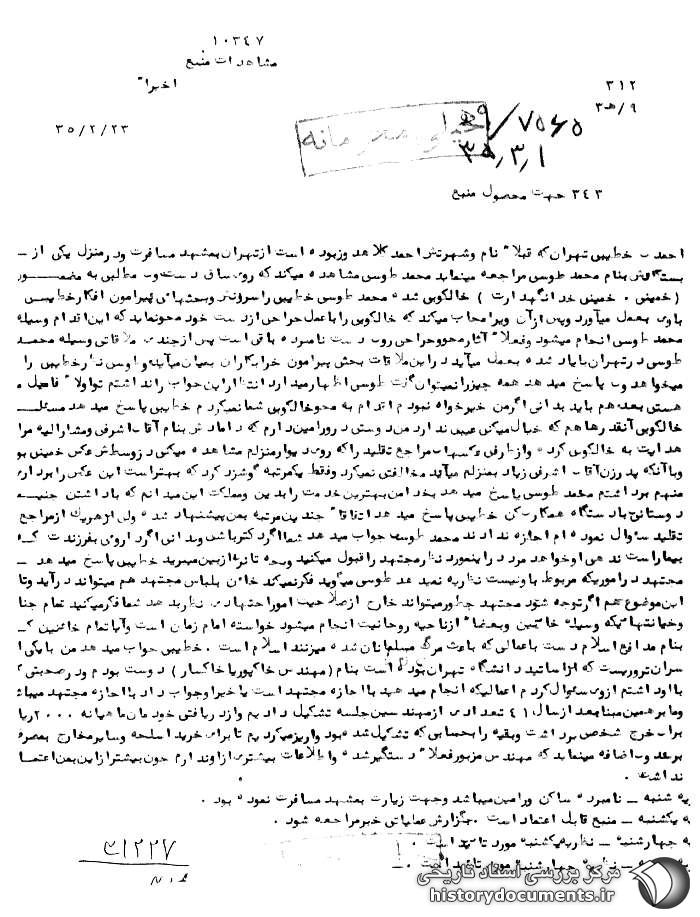 ۱۰۳۴۷
مشاهدات منبع
اخیرا"
۳۱۲
۹/هـ۳
۳۵/۲/۲۳
خیلی محرمانه
۷۵۶۵/
۳۵٫۳٫۱
۳۴۳ جهت محصول منبع
احمد خطیبی تهران که قبلا" نام و شهرتش احمد کلاهدوز بوده است از تهران بمشهد مسافرت ودر منزل یکی از
بستگانش بنام محمد طوسی مراجعه مینماید محمد طوسی مشاهده میکند که روی ساق دست وی مطالبی به مضمون
(خمینی، خمینی خدا نگهدارت) خالکوبی شده محمد طوسی خطیبی را سرزنش وبحثهائی پیرامون افکار خطیبی
باوی بعمل میآورد وپس از آن ویرا مجاب میکند که خالکوبی را با عمل جراحی از دست خود محو نماید که این اقدام وسیله
محمد طوسی انجام میشود وفعلا" آثار محو وجراحی روی دست نامبرده باقی است پس از چندی ملاقاتی وسیله محمد
طوسی در تهران با یاد شده بعمل میآید در این ملاقات بحثی پیرامون خرابکاران بمیان میآید و طوسی نظر خطیبی را
میخواهد وی پاسخ میدهد همه چیز را نمیتوان گفت طوسی اظهار میدارد انتظار این جواب را نداشتم تو اولا" فامیل م
هستی بعد هم باید بدانی اگر من خیرخواه نبودم اقدام به محو خالکوبی شما نمیکردم خطیبی پاسخ میدهد مسئله
خالکوبی آنقدرها هم که خیال میکنی عیبی ندارد من دوستی در ورامین دارم که دامادش بنام آقای اشرفی ومشارالیه مرا
هدایت به خالکوبی کرده واز طرفی عکسهای مراجع تقلید را که روی دیوار منزلم مشاهده میکنی در وسطش عکس خمینی بو
وبا آنکه پدر زن آقای اشرفی زیاد بمنزلم میآید مخالفتی نمیکرد وفقط یکمرتبه گوشزد کرد که بهتر است این عکس را برداری
منهم برداشتم محمد طوسی پاسخ میدهد بخدا من بهترین خدمت را بدین ومملکت این میدانم که با داشتن جنبه
دوستانه با دستگاه همکاری کن خطیبی پاسخ میدهد اتفاقا" چندین مرتبه بمن پیشنهاد شده ولی از هر یک از مراجع
تقلید سئوال نموده ام اجازه نداده اند محمد طوسی جواب میدهد شما اگر دکتر باشی وبدانی اگر داروی بفرزندت که
بیمار است ندهی او خواهد مرد در اینمورد نظر مجتهد را قبول میکنید وبچه تان را از بین میبرید خطیبی پاسخ میدهد
مجتهد در اموریکه مربوط باو نیست نظریه نمیدهد طوسی میگوید فکر نمیکند خائن بلباس مجتهد هم میتواند درآید وتا
این موضوع مهم اگر توجه شود مجتهد چطور میتواند خارج از صلاحیت امور اجتهادی نظر بدهد شما فکر میکنید تمام جنا
وخیانتهائیکه وسیله خائنین وبعضا" از ناحیه روحانیت انجام میشود خواسته امام زمان است وآیا تمام خائنین که
بنام مدافع اسلام دست باعمالی که باعث مرگ مسلمانان شده میزنند اسلام است. خطیبی جواب میدهد من با یکی ا
سران تروریست که از اساتید دانشگاه تهران بوده است بنام (مهندس خاکپور یا خاکسار) دوست بودم ودر صحبتی که
با او داشتم از وی سئوال کردم اعمالیکه انجام میدهید با اجازه مجتهد است یا خیر او جواب داد با اجازه مجتهد میبا
وما بر همین مبنا بعد از سال ۴۱ تعدادی از مهندسین جلسه تشکیل دادیم واز دریافتی خودمان ماهیانه ۲۰۰۰ ریا
برای خرج شخصی برداشت وبقیه را بحسابی که تشکیل شده بود واریز میکردیم تا برای خرید اسلحه وسایر مخارج بمصرف
برسد وی اضافه مینماید که مهندس مزبور فعلا" دستگیر شده واطلاعات بیشتری از او ندارم چون بیشتر از این بمن اعتما
نداشت.
یه شنبه ـ نامبرده ساکن ورامین میباشد وجهت زیارت بمشهد مسافرت نموده بود.
یه یکشنبه ـ منبع قابل اعتماد است. بگزارش عملیاتی خبر مراجعه شود.
یه چهارشنبه ـ نظریه یکشنبه مورد تائید است.
ـ نظریه چهارشنبه مورد تائید است.
۱۲۲۷
مرکز بررسی اسناد تاریخی
historydocuments.ir